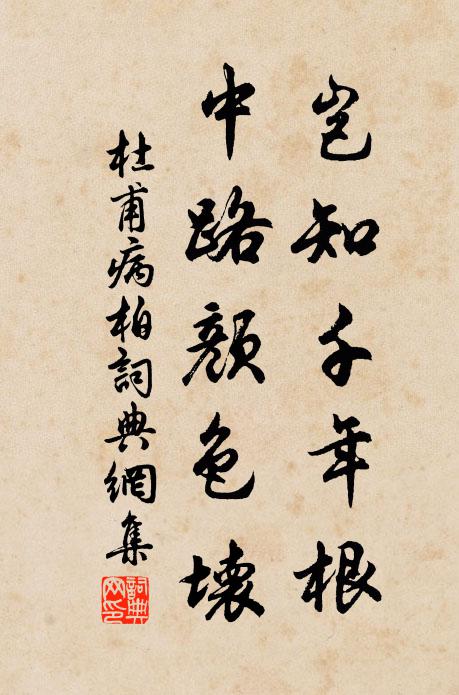 岂知千年根
中路颜色壞
杜甫病柏詞典網集
詞典网印